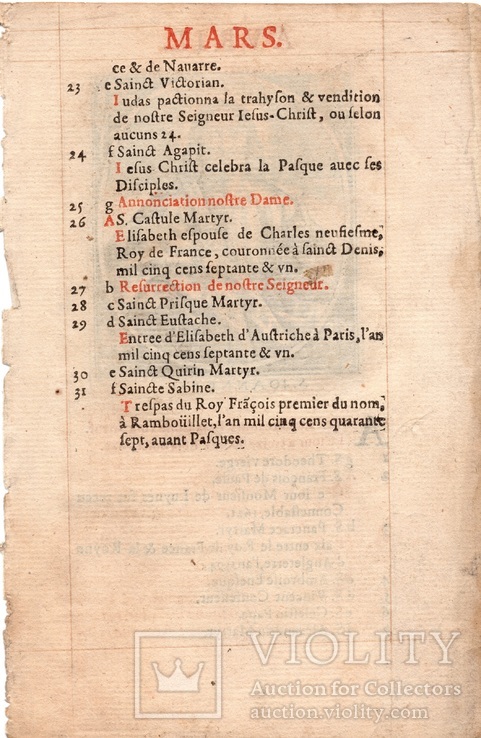 MARS.
ce & de Nauarre.
23 e Sainct Victorian.
Iudas pactionna la trahyson & vendition
de nostre Seigneur Iesus-Christ, ou selon
aucuns 24.
24 f Sainct Agapit.
Iesus Christ celebra la Pasque auec ses
Disciples.
25 g Annonciation nostre Dame.
26 A S. Castule Martyr.
Elisabeth espouse de Charles neufiesme,
Roy de France, couronnée à sainct Denis,
mil cinq cens septante & vn.
27 b Resurrection de nostre Seigneur.
28 c Sainct Prisque Martyr.
29 d Sainct Eustache.
Entree d'Elisabeth d'Austriche à Paris, l'an
mil cinq cens septante & vn.
30 e Sainct Quirin Martyr.
31 f Saincte Sabine.
Trespas du Roy Frãçois premier du nom,
à Ramboüillet, l'an mil cinq cens quarante
sept, auant Pasques.
VIOLITY
Auction for Collectors
auction.violity.com